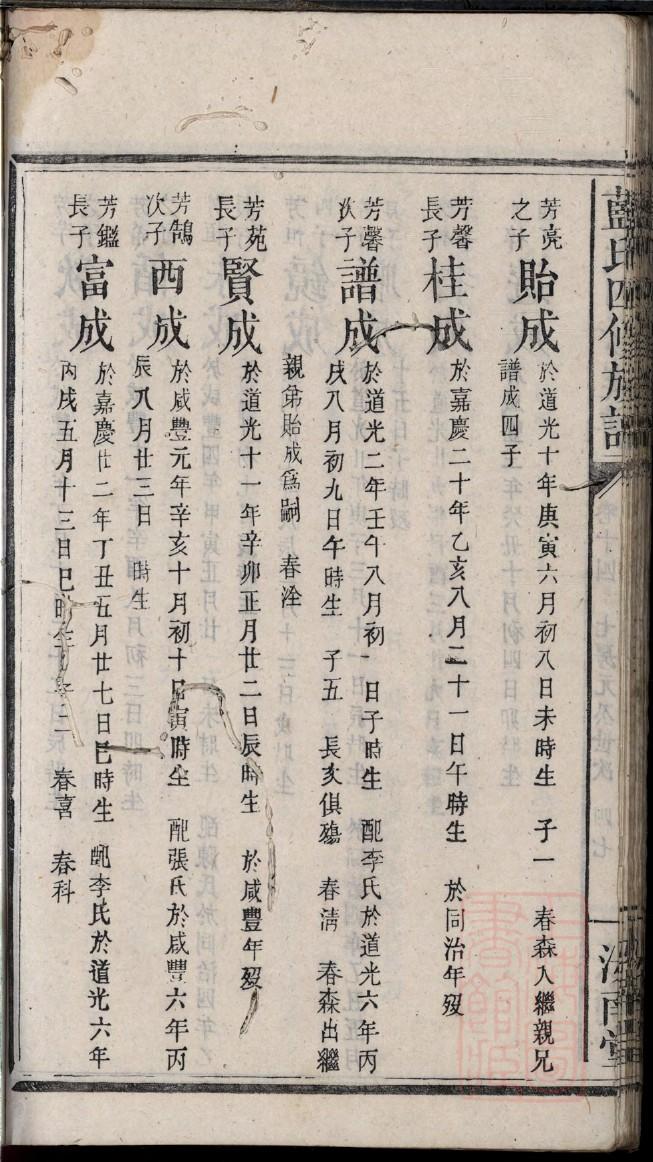 藍氏四修族譜
芳亮之子 貽成 於道光十年庚寅六月初八日未時生 子一 春森入繼親兄
譜成四子
芳馨長子 桂成 於嘉慶二十年乙亥八月二十一日午時生 於同治年歿
芳馨次子 譜成 於道光二年壬午八月初一日子時生 配李氏於道光六年丙
戌八月初九日午時生 子五 長亥俱殤 春淸 春森出繼
親弟貽成爲嗣 春淫
芳苑長子 賢成 於道光十一年辛卯正月廿二日辰時生 於咸豐年歿
芳鵠次子 西成 於咸豐元年辛亥十月初十日寅時生 配張氏於咸豐六年丙
辰八月廿三日 時生
芳鑑長子 富成 於嘉慶廿二年丁丑五月廿七日巳時生 配李氏於道光六年
丙戌五月十三日巳時生 子二 春喜 春科